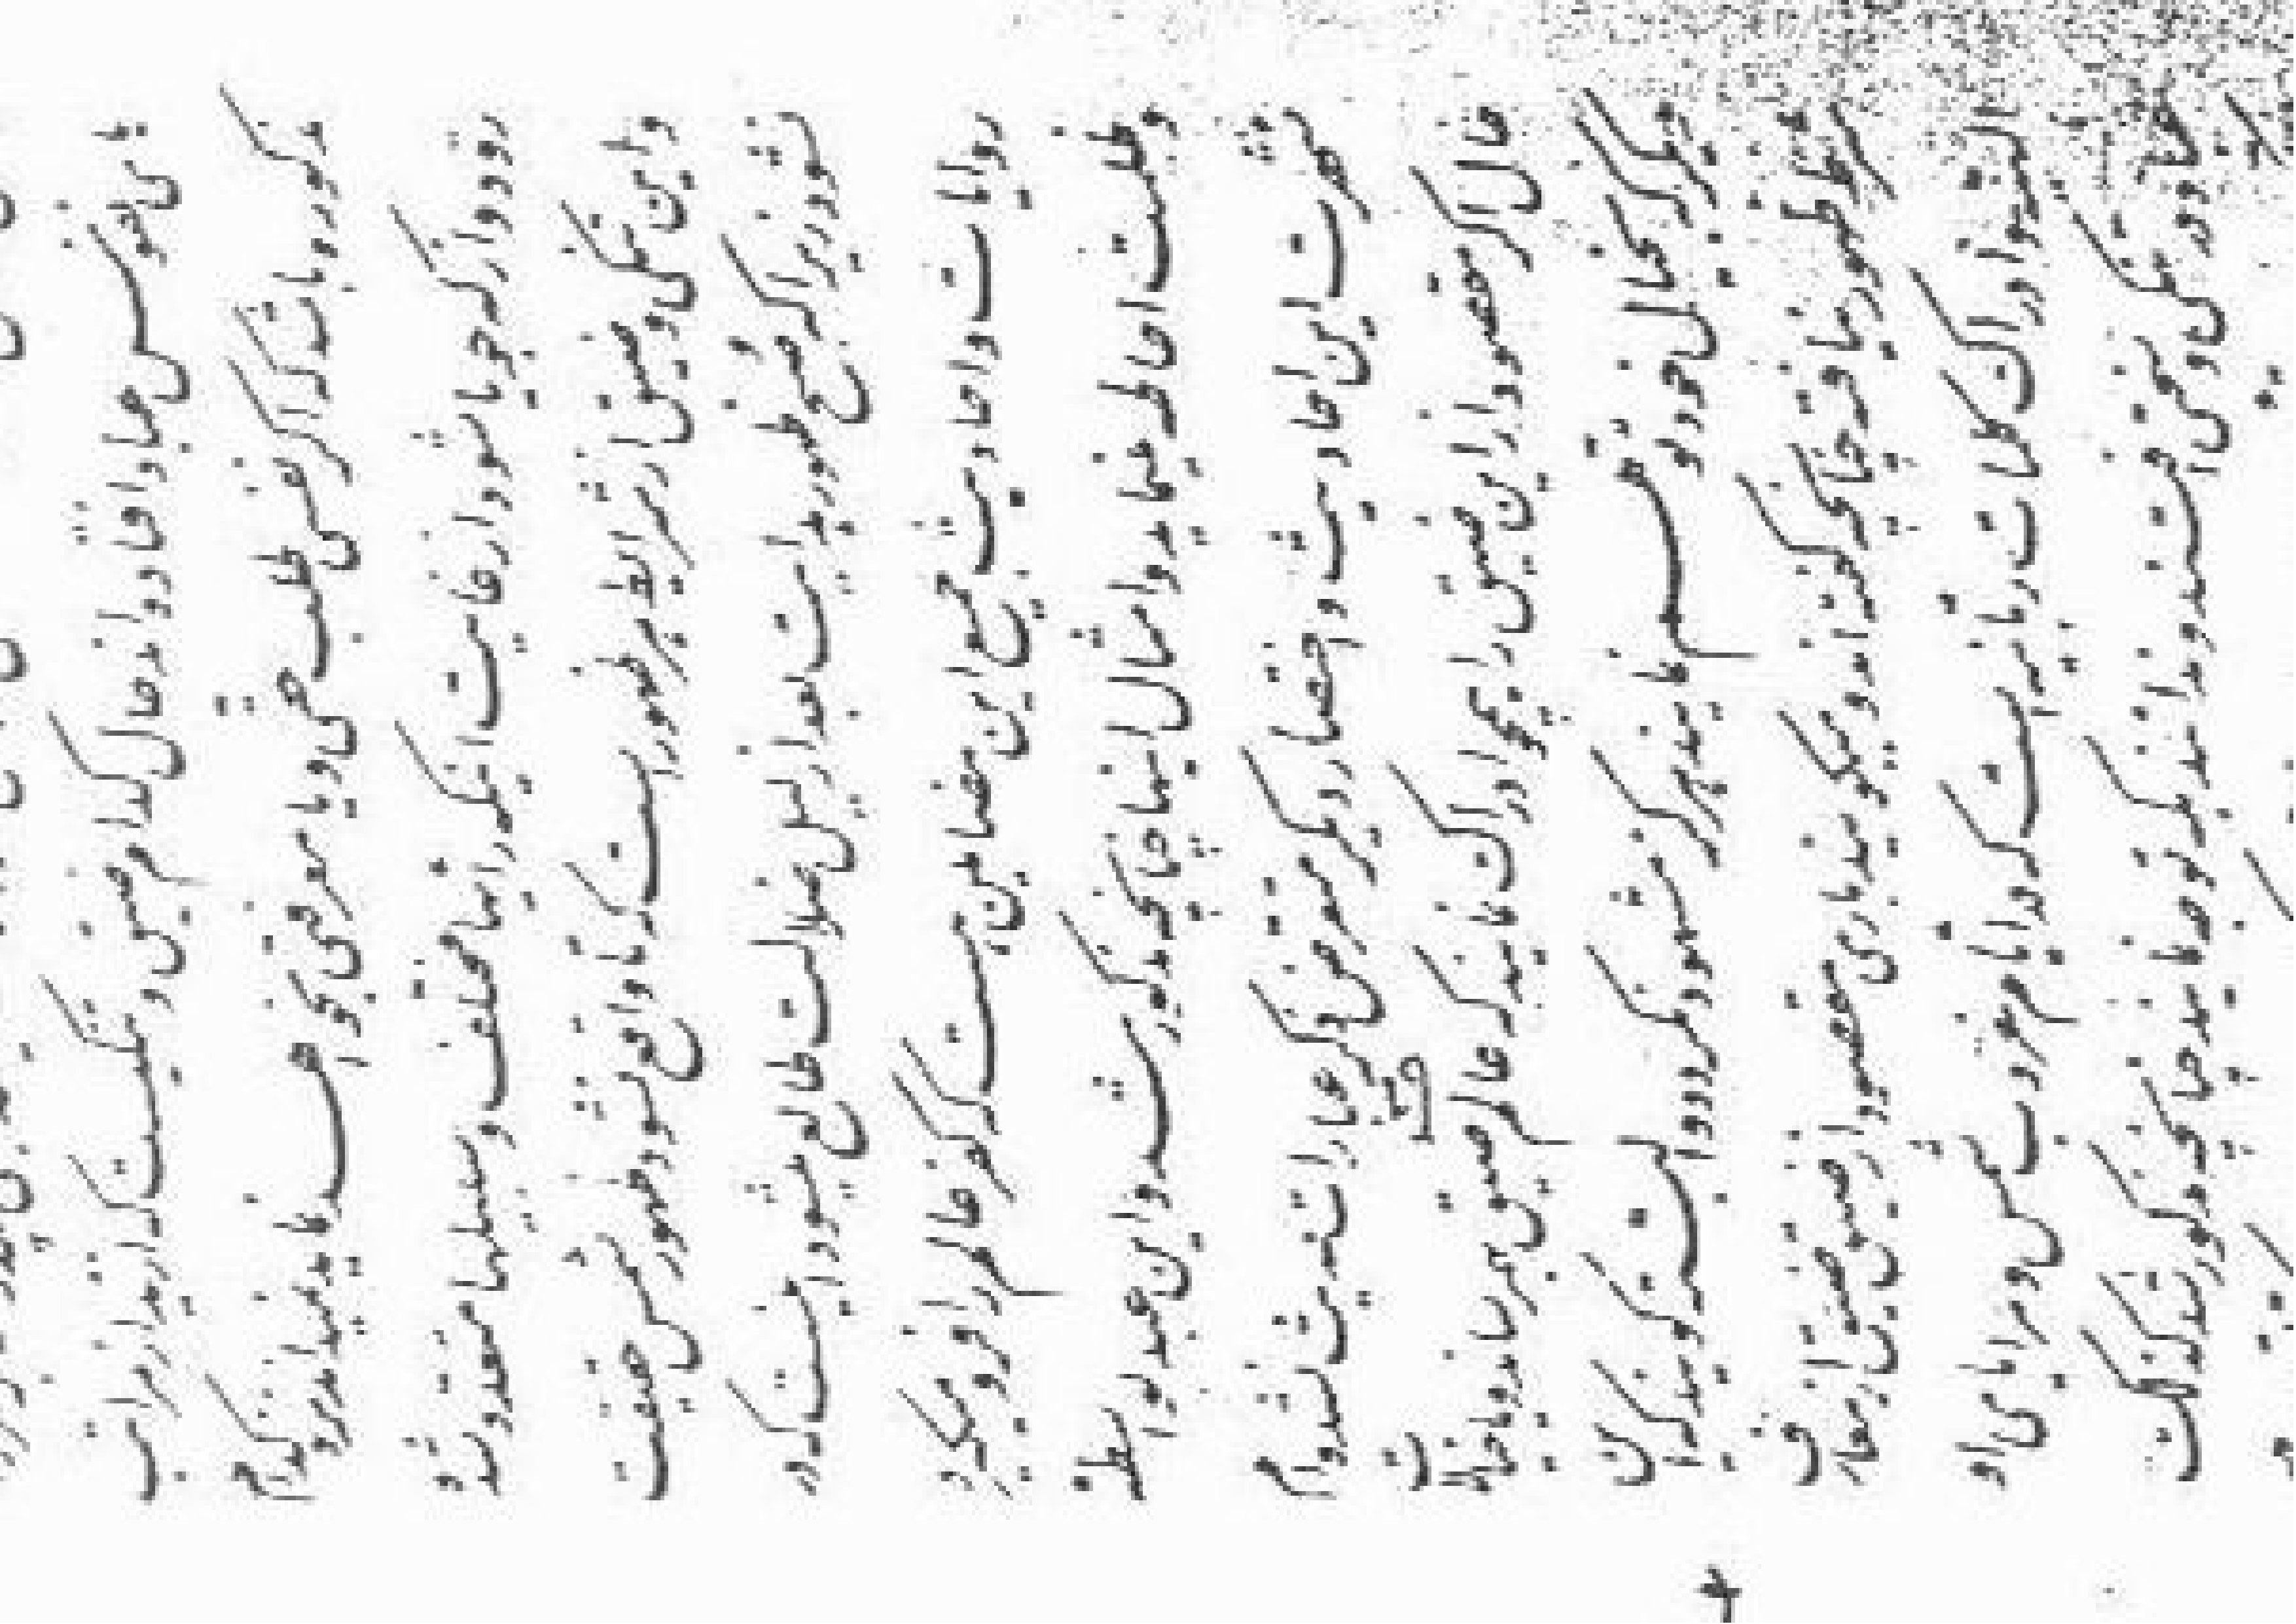 نفوس عباد افتاده‌اند حال کدام ضیق و تنگیست که ازید از مراتب
مذکوره باشد که اگر نفسی طلب حقی و یا معرفتی بخواهد نماید نمیداند نزد کدام
رود و از که جویا شود از غایت اینکه رایها مختلف و سبیلها متعدد شده
و این تنگی و ضیق از شرایط هر ظهور است که تا واقع نشود ظهور شمس حقیقت
نشود زیرا که صبح ظهور هدایت بعد از لیل ضلالت طالع میشود اینست که در
روایات و احادیث جمیع این مضامین هست که کفر عالم را فرو میگیرد
و ظلمت احاطه مینماید و امثال اینها چنانچه مذکور شد و این عبد بواسطه
شهرت این احادیث و اختصار دیگر متعرض ذکر عبارات حدیث نشده‌ام
حال اگر مقصود از این ضیق را همچو ادراک نمایند که عالم ضیق بهم رساند و یا خیالات
دیگر که بخیال خود توهم نمایند هرگز مشهود نگردد و البته گویند که این
شرط ظهور نیافته چنانچه گفته‌اند و میگویند باری مقصود از ضیق ضیق از معارف
الهیه و ادراک کلمات ربانیه است که در ایام غروب شمس و مرایای او
عباد در تنگی و سختی افتند و ندانند بکه توجه نمایند چنانچه مذکور شد کذلک